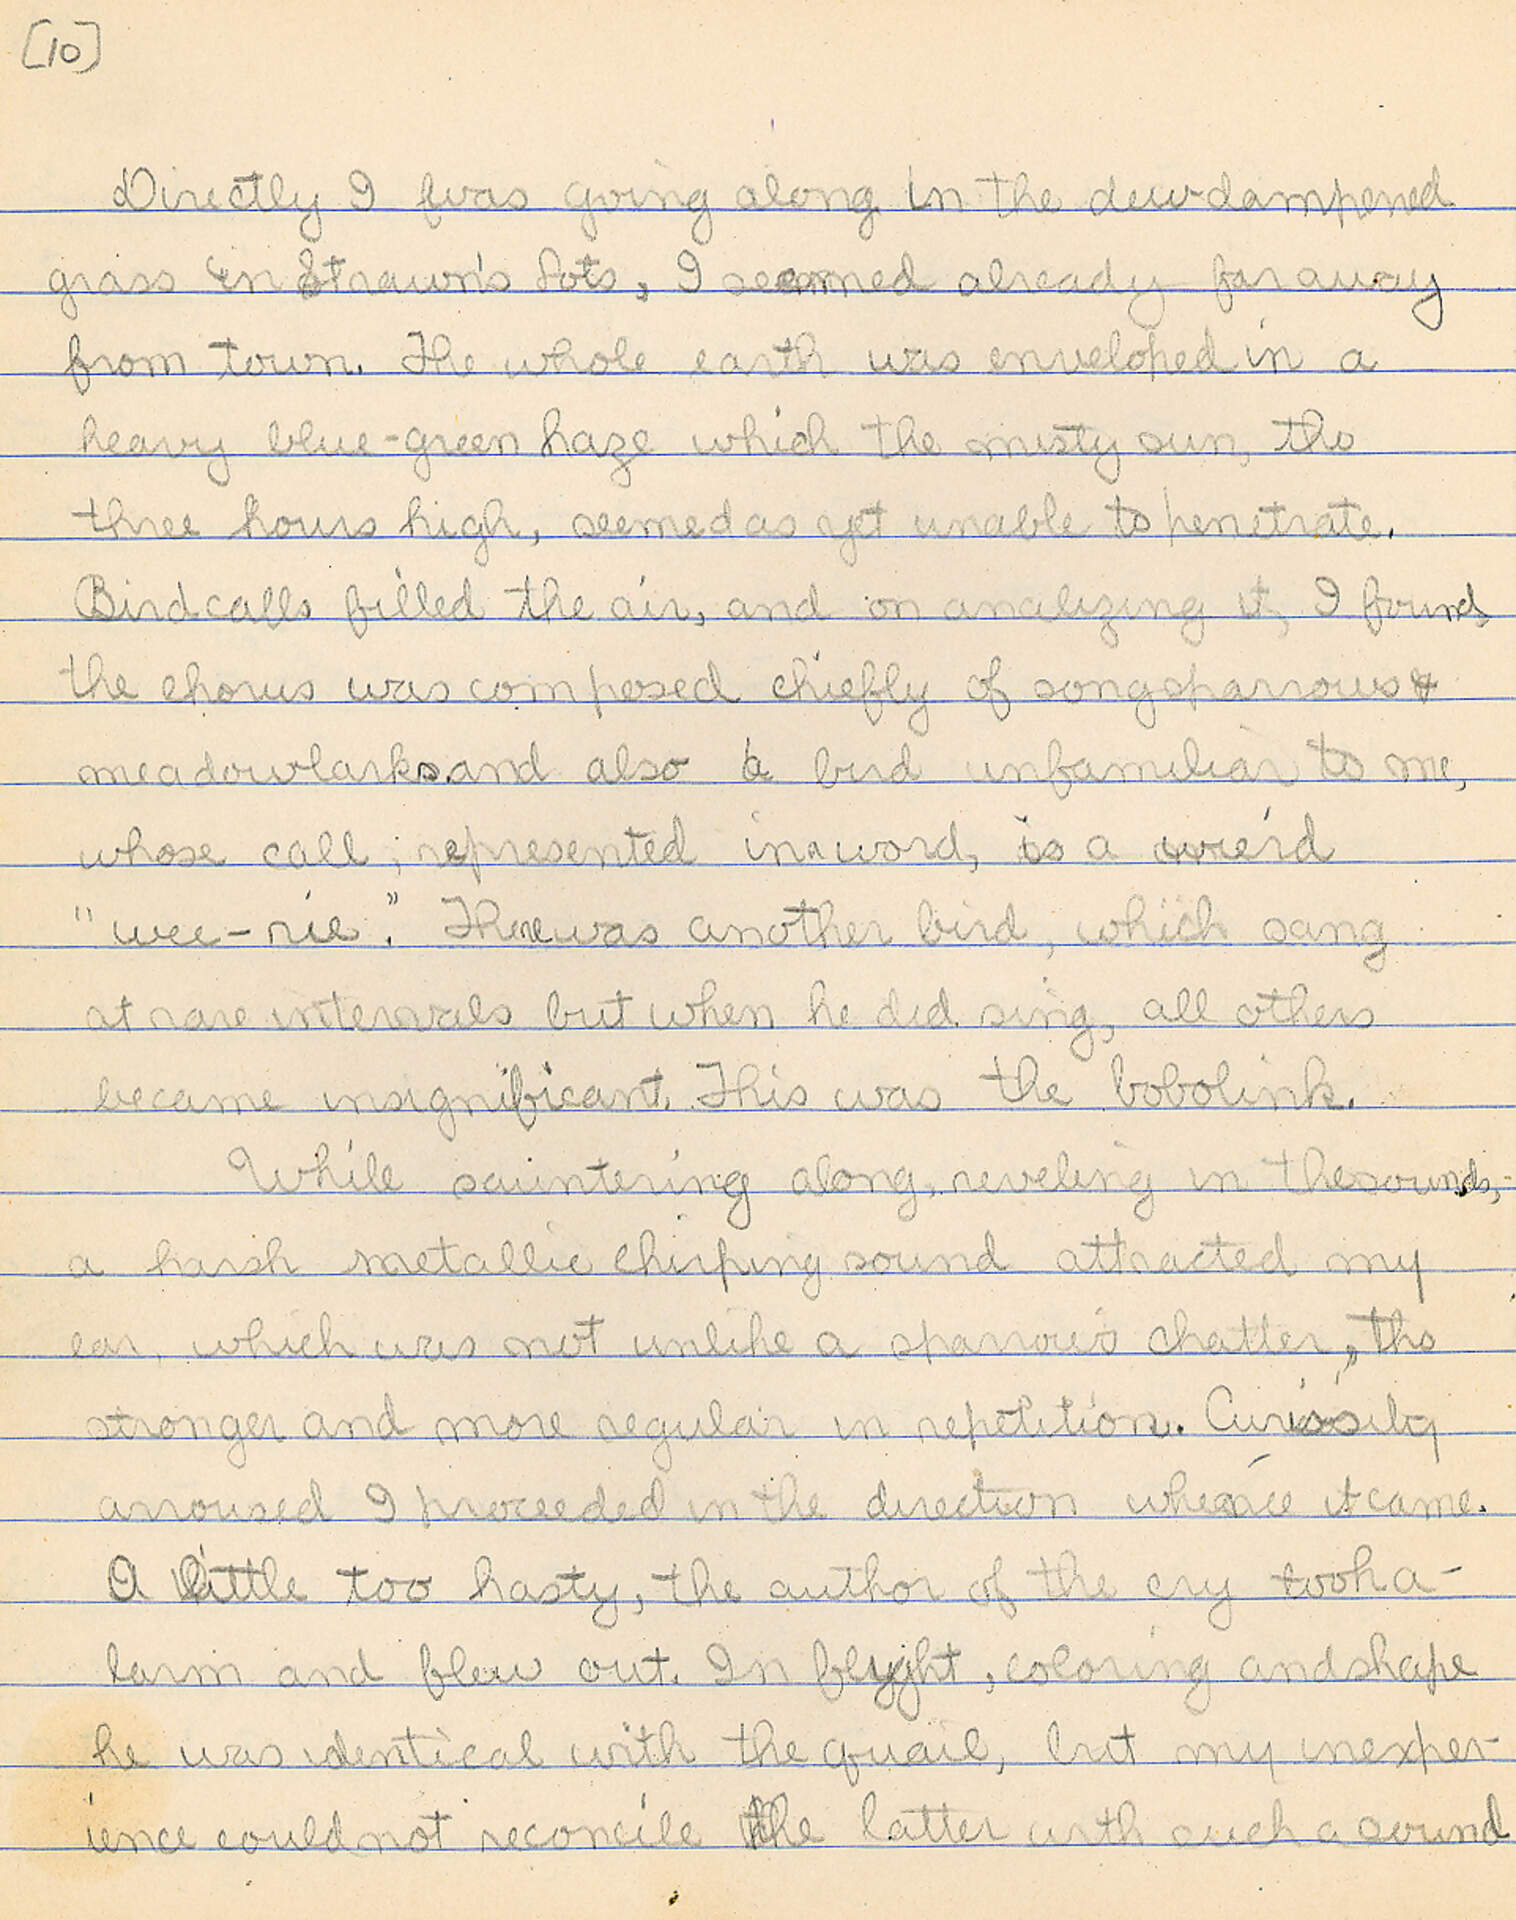 [10]
Directly I was going along in the dew-dampened
grass in Strawn's Lots, I seemed already far away
from town. The whole earth was enveloped in a
heavy blue-green haze which the misty sun, tho
three hours high, seemed as yet unable to penetrate.
Bird calls filled the air, and on analizing it, I found
the chorus was composed chiefly of song sparrows &
meadowlarks and also a bird unfamiliar to me,
whose call, represented in word, is a weird
"wee-rie". There was another bird, which sang
at rare intervals but when he did sing, all others
became insignificant. This was the bobolink.
While sauntering along, reveling in the sounds,
a harsh metallic chirping sound attracted my
ear, which was not unlike a sparrow's chatter, tho
stronger and more regular in repetition. Curiosity
arroused I proceeded in the direction whence it came.
A little too hasty, the author of the cry took a-
larm and flew out. In flyght, coloring and shape
he was identical with the quail, but my inexper-
ience could not reconcile the latter with such a sound